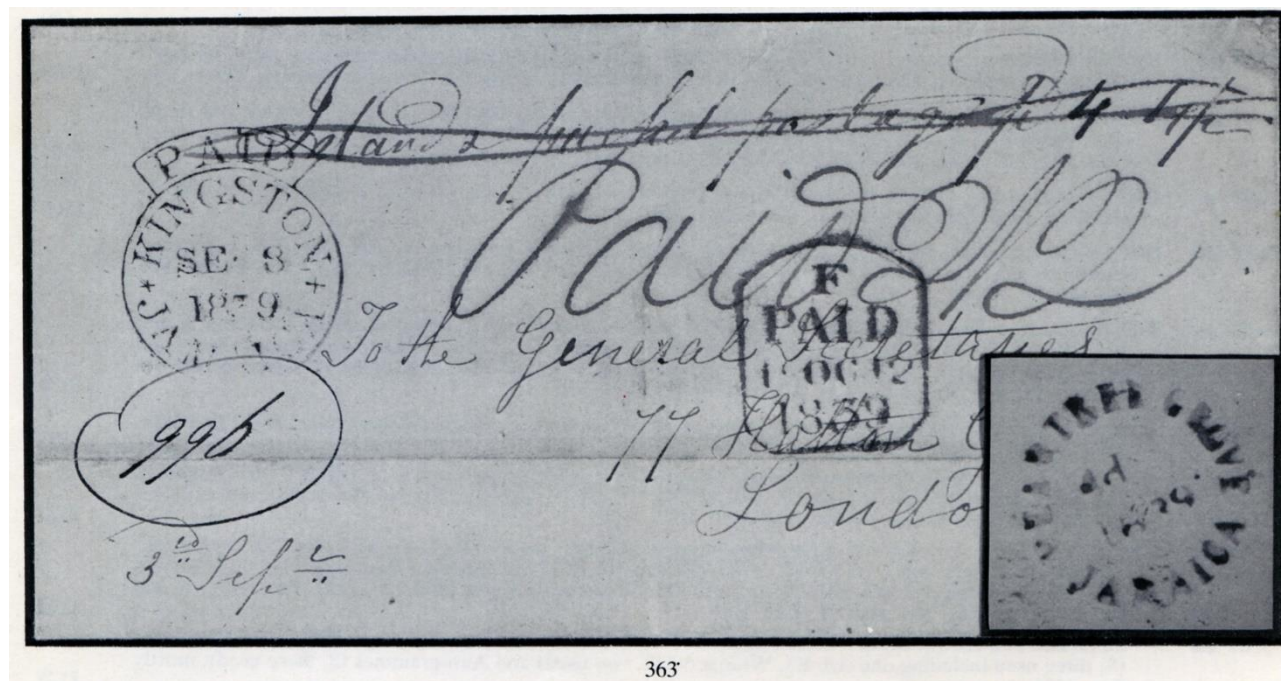 Island & packet postage
PAID
Paid 2/2
KINGSTON
SE 8
1839
JA
F
PAID
OC 12
1839
To the General Secretaries
77 Hatton
Londo
996
3rd Sepr
PEARTREE GROVE
JAMAICA
363